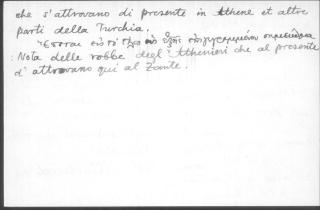 che s'attrovano di presente in Athene et altre
parti della Turchia.
Ἕπεται εἰς τὸ
: Nota delle robbe degl'Atheniesi che al presente
s'attrovano qui al Zante.